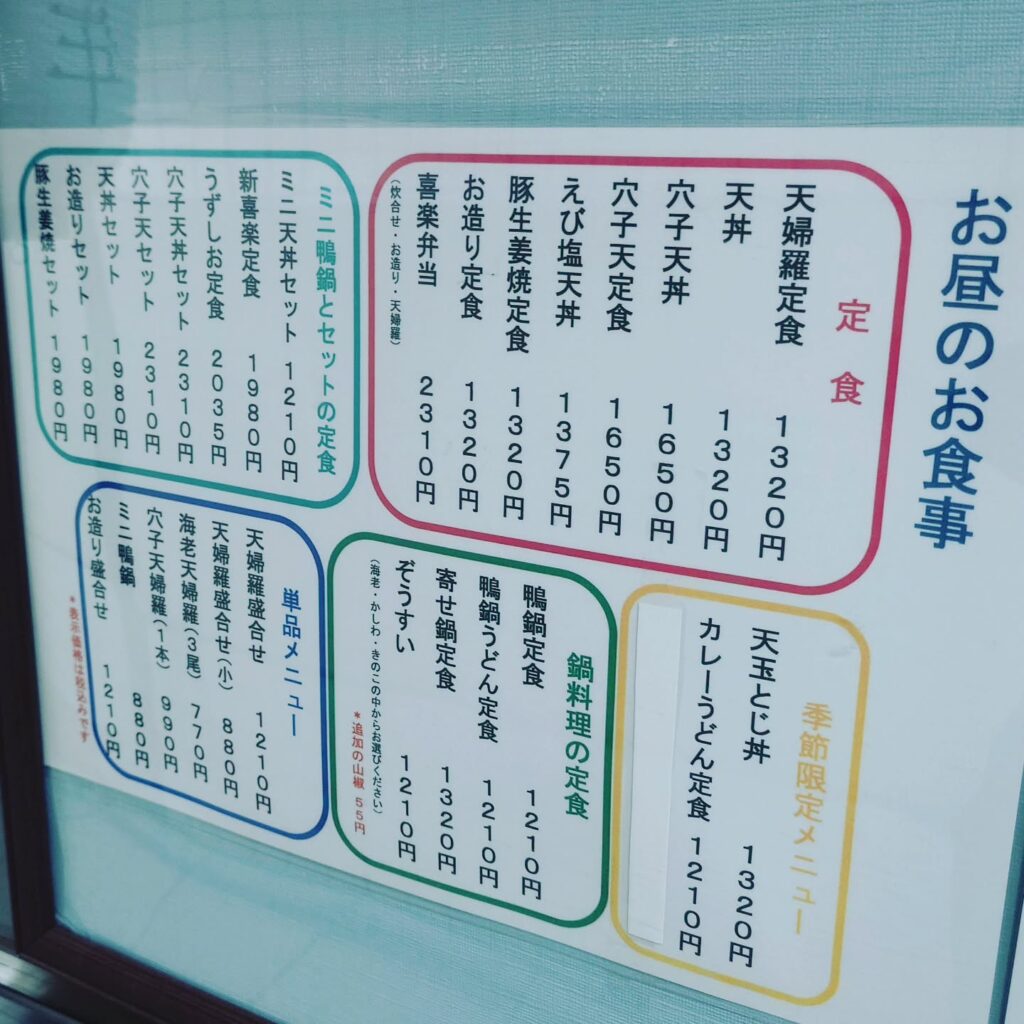 お昼のお食事
定食
天婦羅定食 1320円
天丼 1320円
穴子天丼 1650円
穴子天定食 1650円
えび塩天丼 1375円
豚生姜焼定食 1320円
お造り定食 1320円
喜楽弁当 2310円
(炊合せ・お造り・天婦羅)
ミニ鴨鍋とセットの定食
ミニ天丼セット 1210円
新喜楽定食 1980円
うずしお定食 2035円
穴子天丼セット 2310円
穴子天セット 2310円
天丼セット 1980円
お造りセット 1980円
豚生姜焼セット 1980円
季節限定メニュー
天玉とじ丼 1320円
カレーうどん定食 1210円
鍋料理の定食
鴨鍋定食 1210円
鴨鍋うどん定食 1210円
寄せ鍋定食 1320円
ぞうすい 1210円
(海老・かしわ・きのこの中からお選びください)
*追加の山椒 55円
単品メニュー
天婦羅盛合せ 1210円
天婦羅盛合せ(小) 880円
海老天婦羅(3尾) 770円
穴子天婦羅(1本) 990円
ミニ鴨鍋 880円
お造り盛合せ 1210円
*表示価格は税込みです